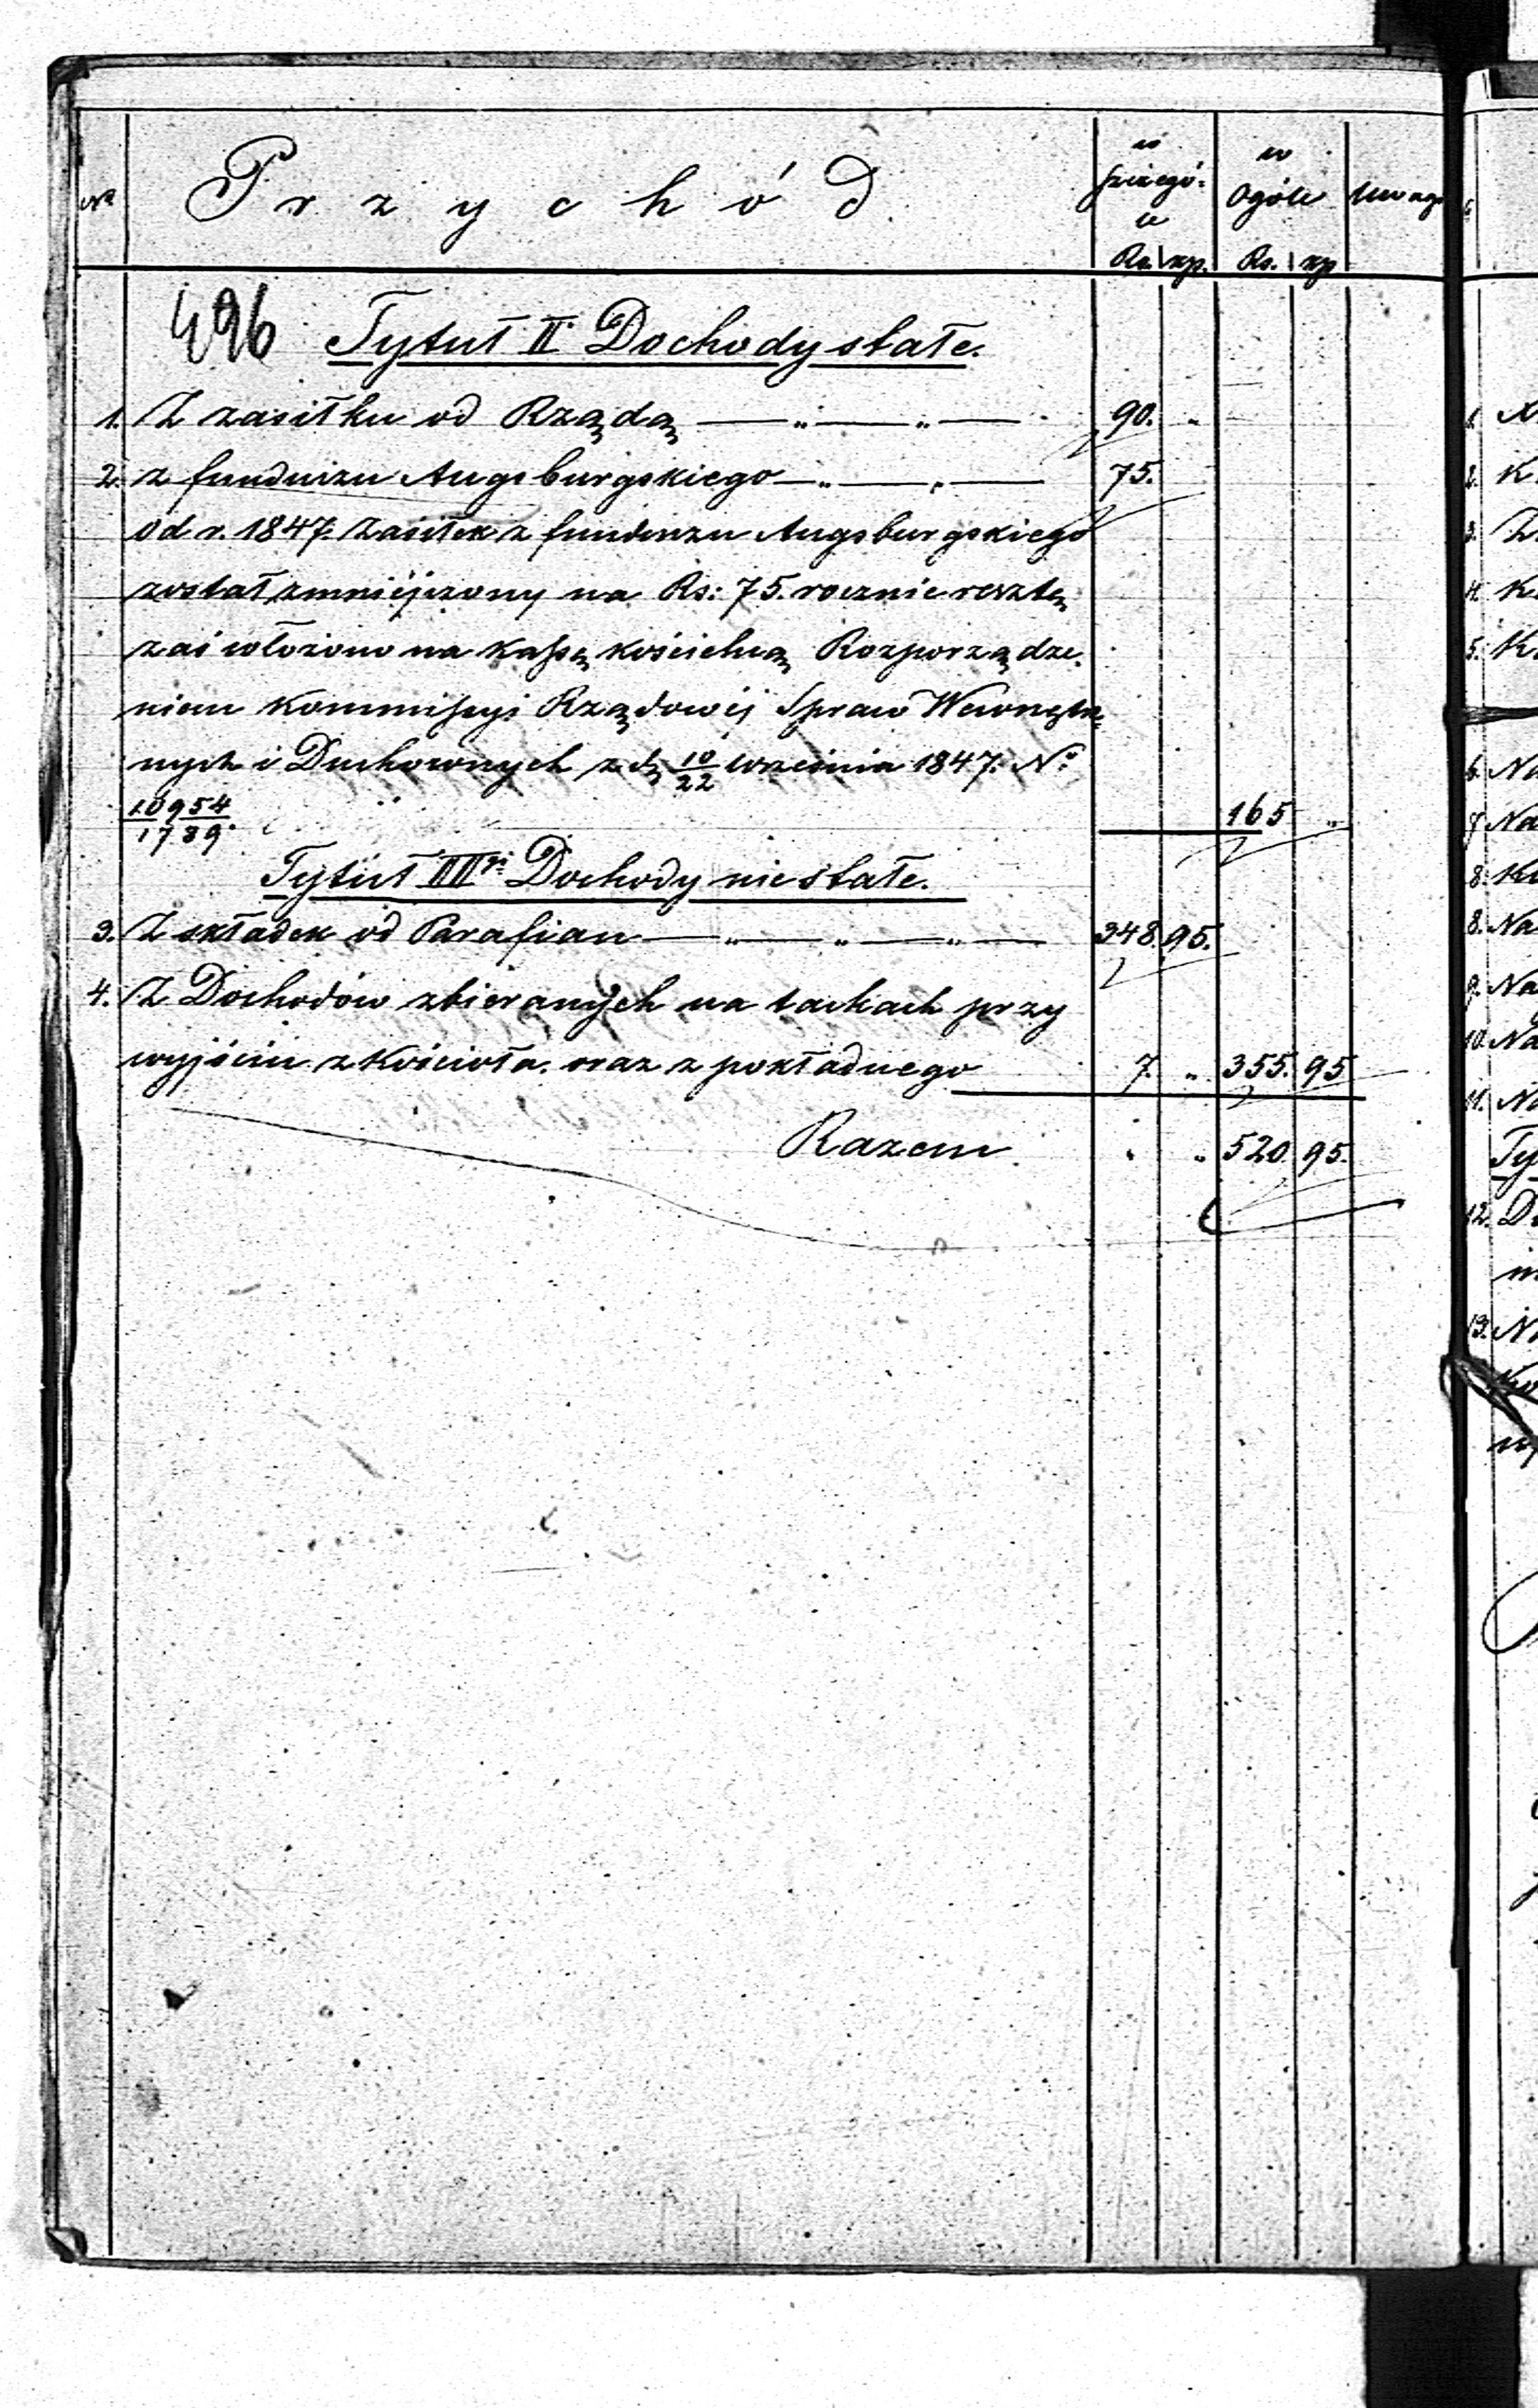 No Przychód w Szczegó- w Ogóle Uwagi
le
Rs. kp. Rs. kp
496 Tytuł II Dochody stałe.
1. Z zasiłku od Rządą — „ — „ — 90. „
2. z funduszu Augsburgskiego — „ — „ — 75.
od r. 1847. Zasiłek z funduszu Augsburgskiego
został zmniejszony na Rs: 75. rocznie resztę
zaś włożono na Kassę kościelną Rozporządze-
niem Kommissyi Rządowéj Spraw Wewnętrz-
nych i Duchownych z d. 10/22 Września 1847. No
10954/1789. 165 „
Tytuł III Dochody niestałe.
3. Z składek od Parafian — „ — „ — „ — 348. 95.
4. Z Dochodów zbieranych na tackach przy
wyjściu z Kościoła. oraz z pokładnego 7. „ 355. 95
Razem „ „ 520. 95.